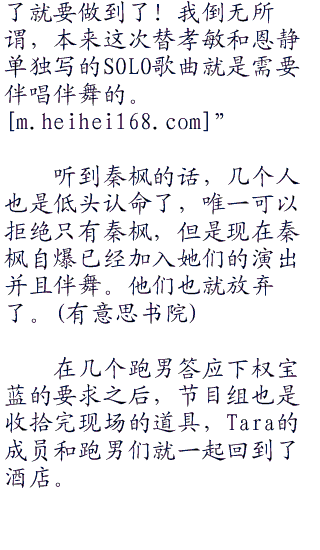 了就要做到了！我倒无所
谓，本来这次替孝敏和恩静
单独写的SOLO歌曲就是需要
伴唱伴舞的。
[m.heihei168.com]”
听到秦枫的话，几个人
也是低头认命了，唯一可以
拒绝只有秦枫，但是现在秦
枫自爆已经加入她们的演出
并且伴舞。他们也就放弃
了。(有意思书院)
在几个跑男答应下权宝
蓝的要求之后，节目组也是
收拾完现场的道具，Tara的
成员和跑男们就一起回到了
酒店。